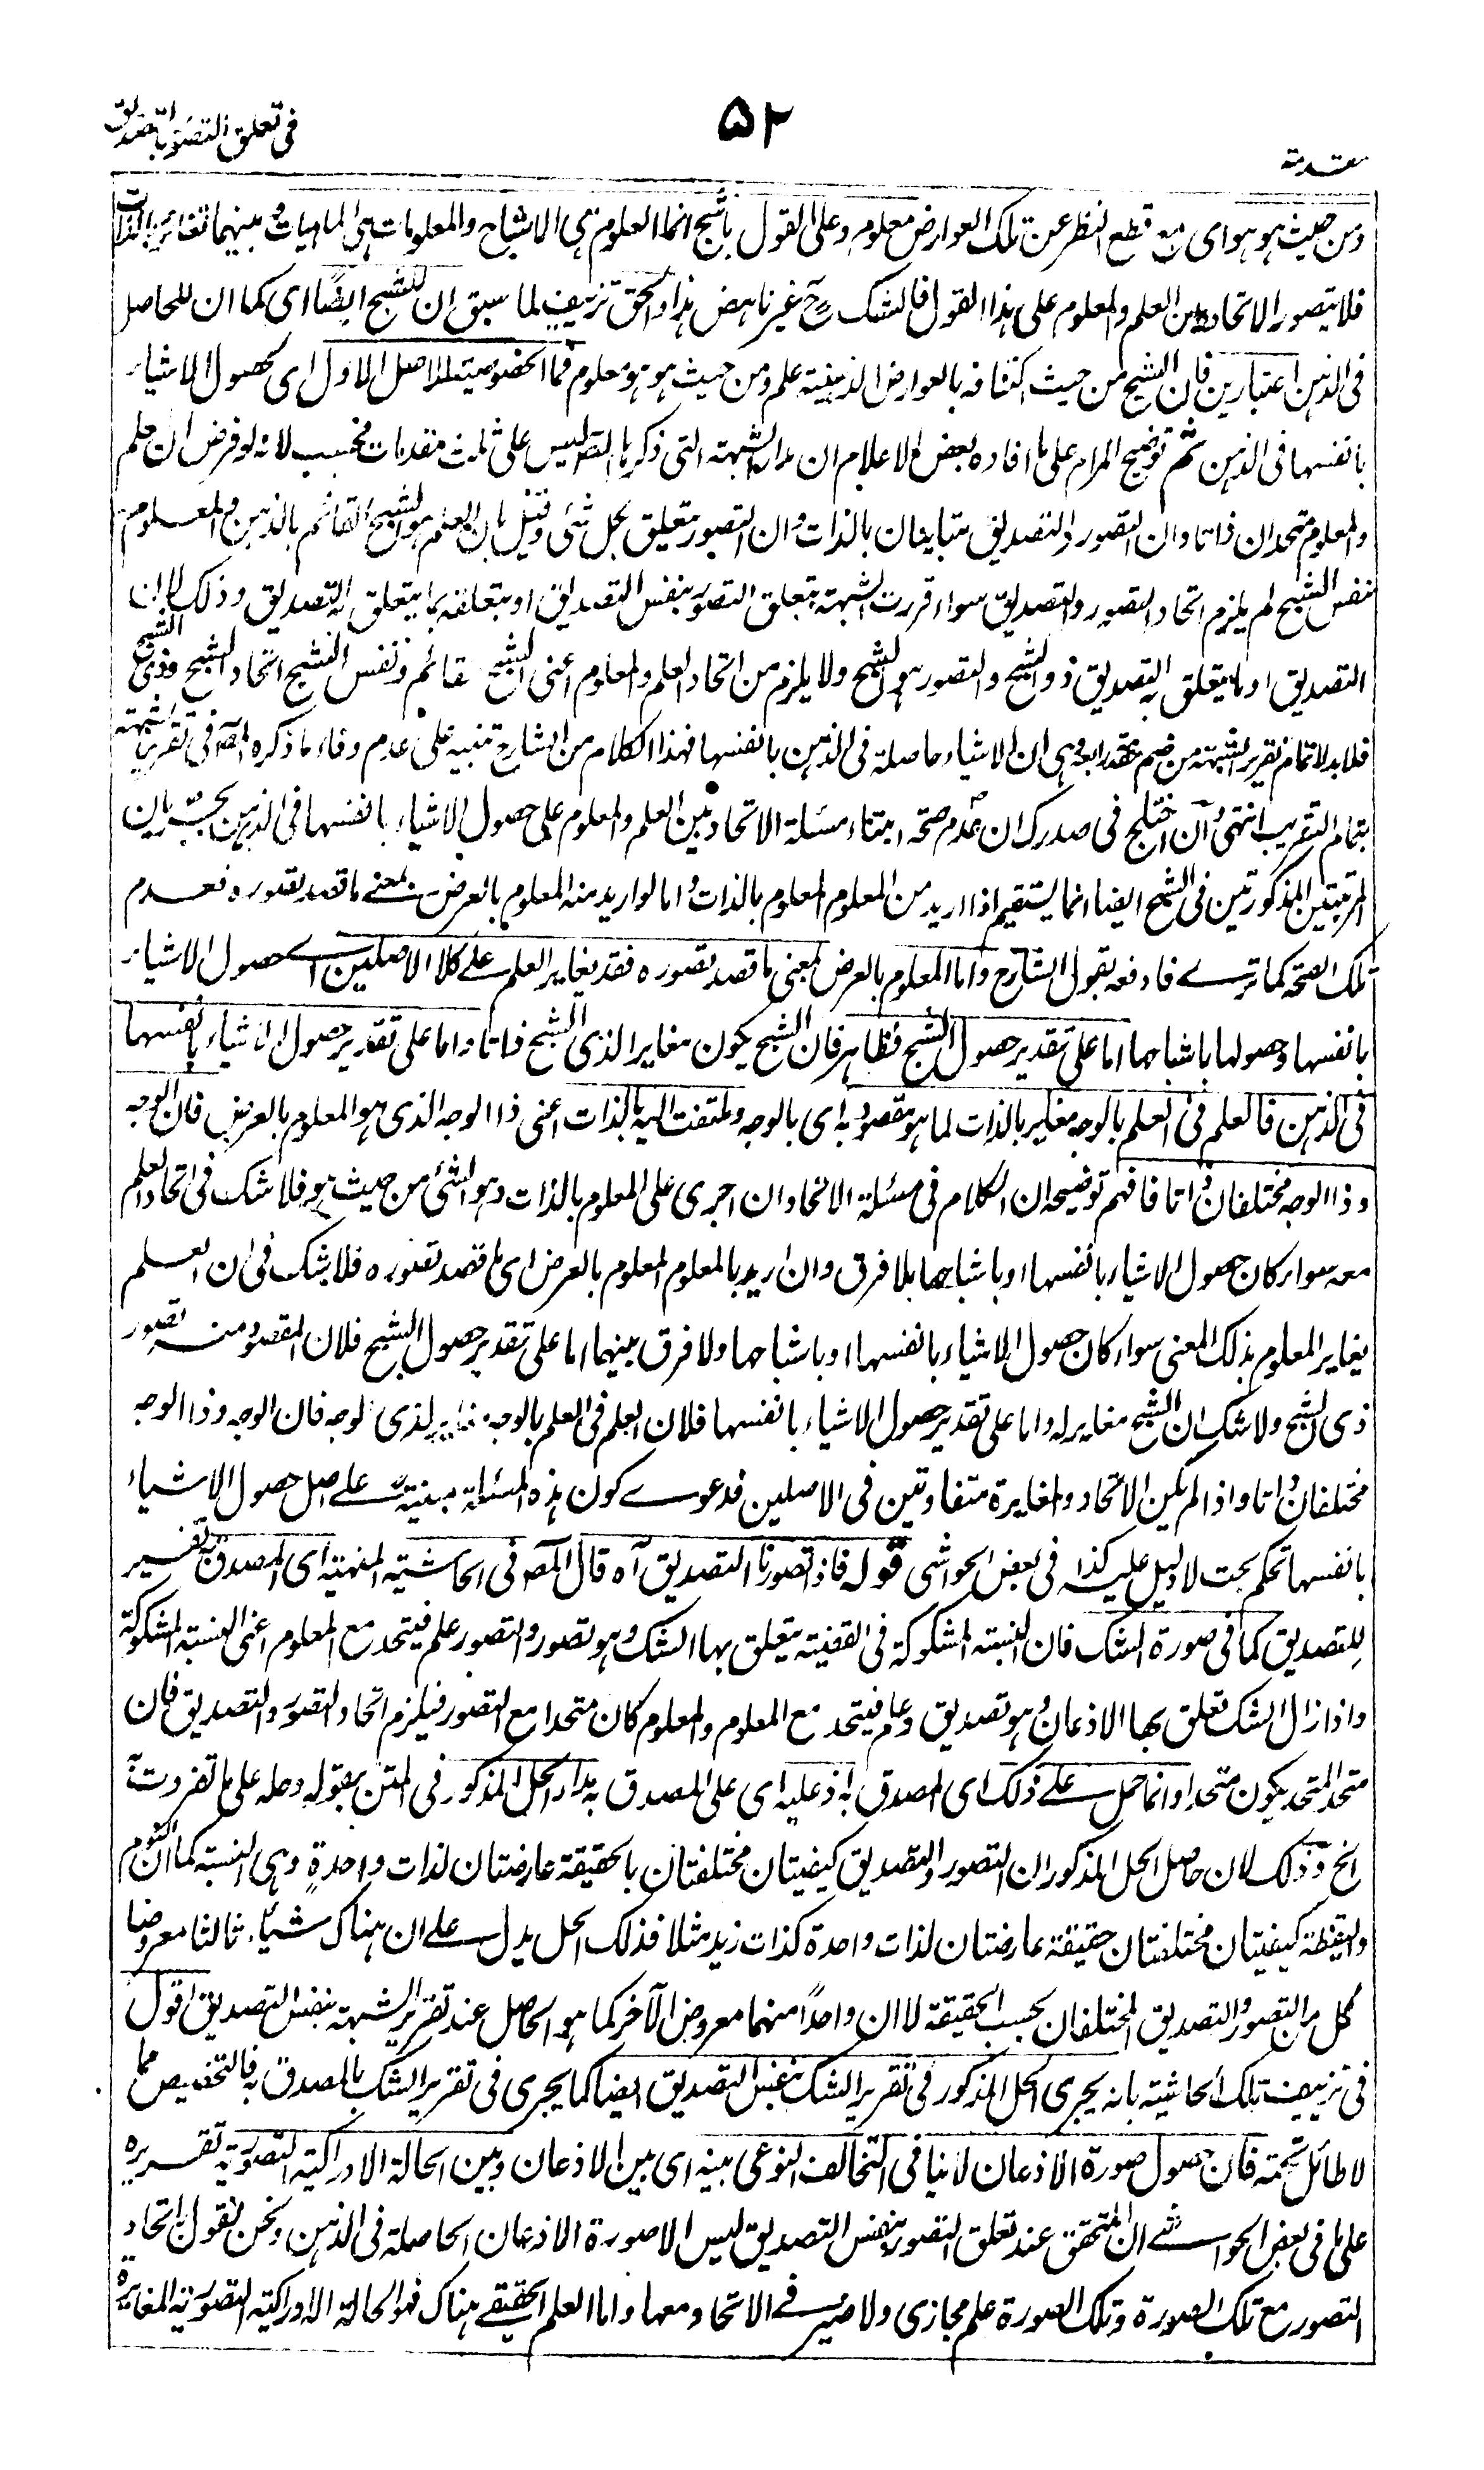 مقدمة
۵۲
فى تعلق التصور بالتصديق
ومن حيث هو هو اى مع قطع النظر عن تلك العوارض معلوم وعلى القول بالشبح انما العلوم هى الاشباح والمعلومات هى الماهيات وبينهما تغائر بالذات
فلا يتصور الاتحاد بين العلم والمعلوم على هذا القول فالشك ح غير ناهض هذا والحق تزئيف لما سبق ان للشبح ايضًا اى كما ان للحاصل
فى الذهن اعتبارين فان الشبح من حيث اكتنافه بالعوارض الذهنية علم ومن حيث هو هو معلوم فما الخصوصية للاصل الاول اى حصول الاشياء
بانفسها فى الذهن ثم توضيح المرام على ما افاده بعض الاعلام ان مدار الشبهة التى ذكرها المص ليس على ثلث مقدمات فحسب لانه لو فرض ان العلم
والمعلوم متحدان ذاتا وان التصور والتصديق متباينان بالذات وان التصور يتعلق بكل شئ وقيل بان العلم هو الشبح القائم بالذهن والمعلوم
نفس الشبح لم يلزم اتحاد التصور والتصديق سواء قررت الشبهة بتعلق التصور بنفس التصديق او بتعلقه بما يتعلق به التصديق وذلك لان
التصديق او ما يتعلق به التصديق ذو الشبح والتصور هو الشبح ولا يلزم من اتحاد العلم والمعلوم اعنى الشبح القائم ونفس الشبح اتحاد الشبح وذى الشبح
فلا بد لاتمام تقرير الشبهة من ضم مقدمة رابعة وهى ان الاشياء حاصلة فى الذهن بانفسها فهذا الكلام من الشارح تنبيه على عدم وفاء ما ذكره المص فى تقرير الشبهة
بتمام التقريب انتهى وان اختلج فى صدرك ان عدم صحة ابتناء مسئلة الاتحاد بين العلم والمعلوم على حصول الاشياء بانفسها فى الذهن بجريان
المرتبتين المذكورتين فى الشبح ايضا انما يستقيم اذا اريد من المعلوم المعلوم بالذات واما لو اريد منه المعلوم بالعرض بمعنى ما قصد تصوره فعدم
تلك الصحة كما ترى فادفعه بقول الشارح واما المعلوم بالعرض بمعنى ما قصد تصوره فقد يغاير العلم على كلا الاصلين اى حصول الاشياء
بانفسها وحصولها باشباحها اما على تقدير حصول الشبح فظاهر فان الشبح يكون مغايرا لذى الشبح ذاتا واما على تقدير حصول الاشياء بانفسها
فى الذهن فالعلم فى العلم بالوجه مغاير بالذات لما هو مقصود به اى بالوجه وملتفت اليه بالذات اعنى ذا الوجه الذى هو المعلوم بالعرض فان الوجه
وذا الوجه مختلفان ذاتا فافهم توضيحه ان الكلام فى مسئلة الاتحاد ان اجرى على المعلوم بالذات وهو الشئ من حيث هو فلا شك فى اتحاد العلم
معه سواء كان حصول الاشياء بانفسها او باشباحها بلا فرق وان اريد بالمعلوم المعلوم بالعرض اى ما قصد تصوره فلا شك فى ان العلم
يغاير المعلوم بذلك المعنى سواء كان حصول الاشياء بانفسها او باشباحها ولا فرق بينهما اما على تقدير حصول الشبح فلان المقصود منه تصور
ذى الشبح ولا شك ان الشبح مغاير له واما على تقدير حصول الاشياء بانفسها فلان العلم فى العلم بالوجه مغاير لذى الوجه فان الوجه وذا الوجه
مختلفان ذاتا واذا لم يكن الاتحاد والمغايرة متفاوتين فى الاصلين فدعوى كون هذه المسئلة مبنية على اصل حصول الاشياء
بانفسها تحكم بحت لا دليل عليه كذا فى بعض الحواشى قوله فاذا تصورنا التصديق آه قال المص فى الحاشية المنهية اى المصدق به تفسير
للتصديق كما فى صورة الشك فان النسبة المشكوكة فى القضية يتعلق بها الشك وهو تصور والتصور علم فيتحد مع المعلوم اعنى النسبة المشكوكة
واذا زال الشك تعلق بها الاذعان وهو تصديق وعلم فيتحد مع المعلوم والمعلوم كان متحدا مع التصور فيلزم اتحاد التصور والتصديق فان
متحد المتحد يكون متحدا وانما حمل على ذلك اى المصدق به اذ عليه اى على المصدق به مدار الحل المذكور فى المتن بقوله وحله على ما تفردت
الخ وذلك لان حاصل الحل المذكور ان التصور والتصديق كيفيتان مختلفتان بالحقيقة عارضتان لذات واحدةٍ وهى النسبة كما ان النوم
واليقظة كيفيتان مختلفتان حقيقة عارضتان لذات واحدة كذات زيد مثلا فذلك الحل يدل على ان هناك شيئا ثالثا معروضا
لكل من التصور والتصديق المختلفان بحسب الحقيقة لا ان واحدًا منهما معروض الآخر كما هو الحاصل عند تقرير الشبهة بنفس التصديق اقول
فى تزييف تلك الحاشية بانه يجرى الحل المذكور فى تقرير الشك بنفس التصديق ايضا كما يجرى فى تقرير الشك بالمصدق به فالتخصيص مما
لا طائل تحته فان حصول صورة الاذعان لا ينافى التخالف النوعى بينه اى بين الاذعان وبين الحالة الادراكية التصورية تقريره
على ما فى بعض الحواشى ان المتحقق عند تعلق التصور بنفس التصديق ليس الا صورة الاذعان الحاصلة فى الذهن ونحن نقول باتحاد
التصور مع تلك الصورة وتلك الصورة علم مجازى ولا ضير فى الاتحاد معها واما العلم الحقيقى هناك فهو الحالة الادراكية التصورية المغايرة